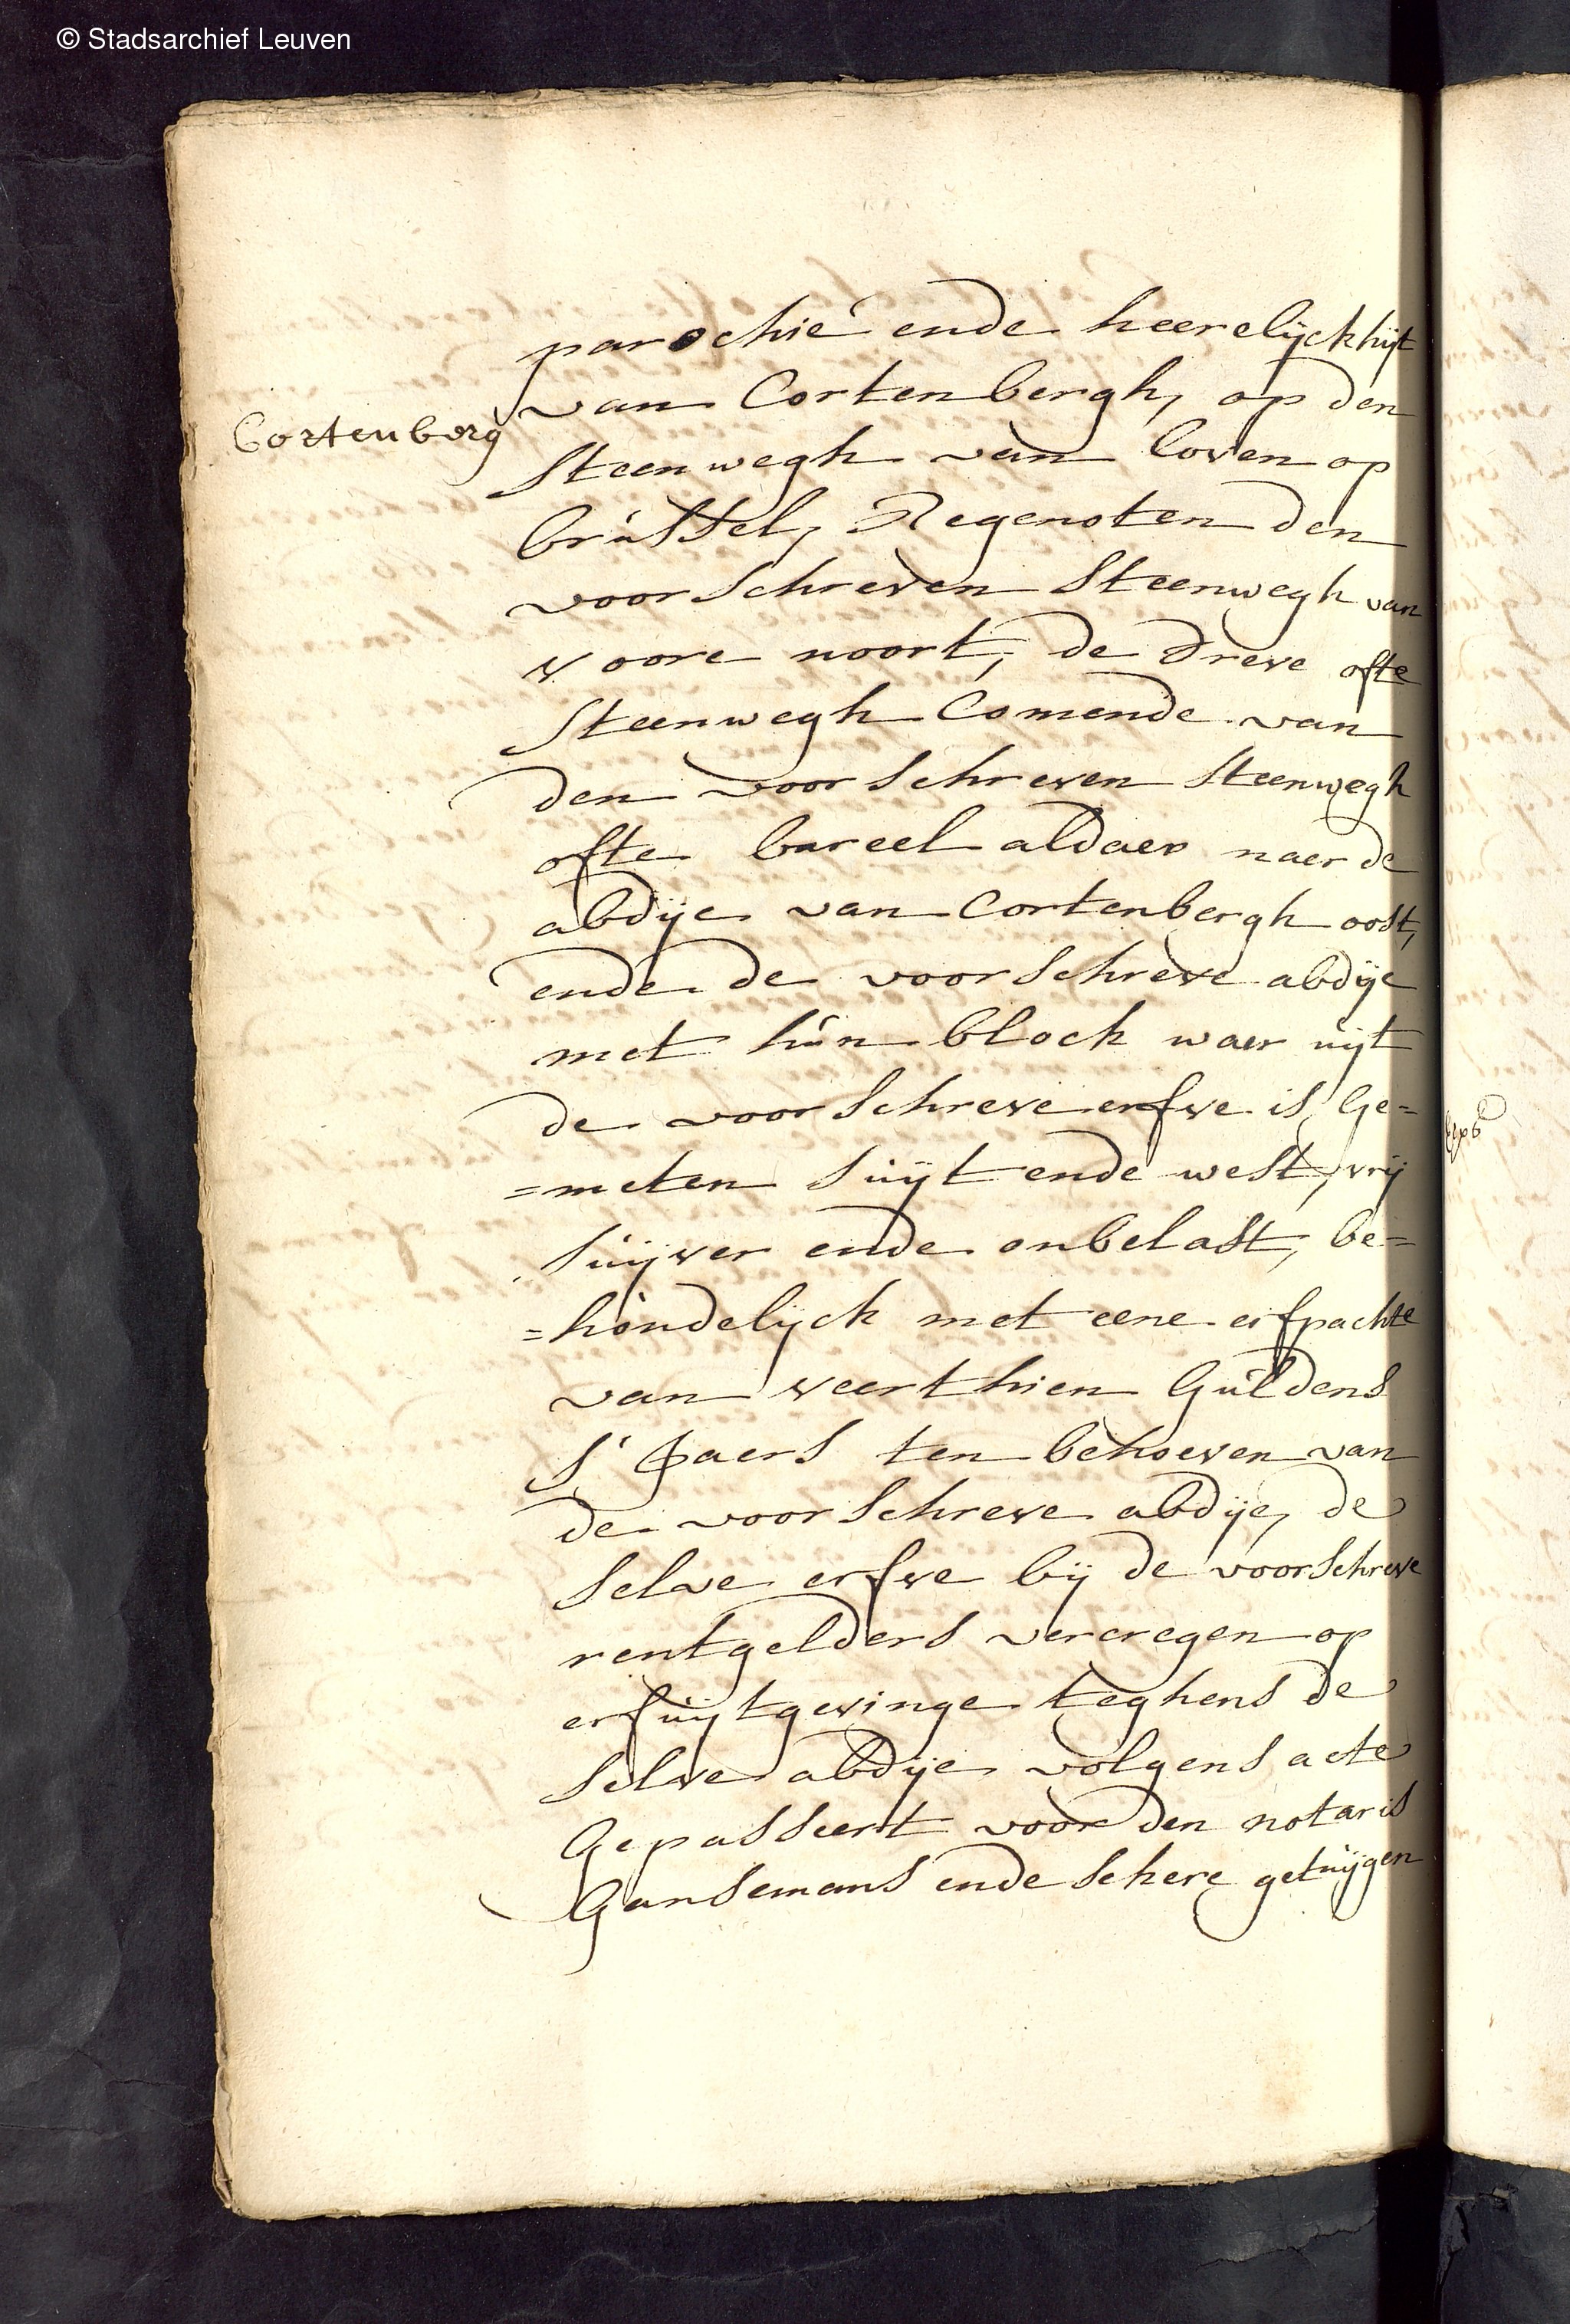 © Stadsarchief Leuven
parochie ende heerelijckhijt
van Cortenbergh, op den
Cortenberg
Steenwegh van loven op
brussel, Regenoten den
voorschreven Steenwegh van
voore noort, de dreve ofte
Steenwegh Comende van
den voorschreven Steenwegh
ofte bareel aldaer naer de
abdije van Cortenbergh oost,
ende de voorschreve abdije
met hun block waer uijt
de voorschreve erfve is ge=
=meten suijt ende west, vrij
suijver ende onbelast, be=
=hondelijck met eene erfpachte
van veerthien guldens
s' Jaers ten behoeven van
de voorschreve abdije, de
selve erfve bij de voorschreve
rentgelders vercregen op
erfuijtgevinge teghens de
selve abdije volgens acte
gepasseert voor den notaris
Gansemans ende sekere getuijgen